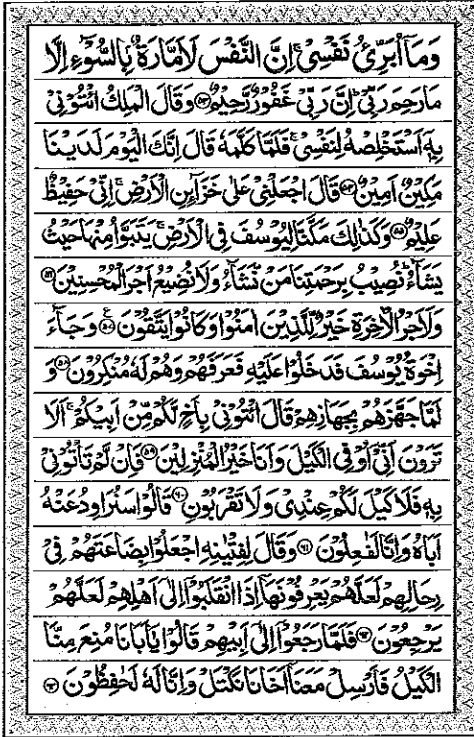 وَمَآ اُبَرِّئُ نَفْسِىْ ۚ اِنَّ النَّفْسَ لَاَمَّارَةٌۢ بِالسُّوْٓءِ اِلَّا
مَا رَحِمَ رَبِّىْ ؕ اِنَّ رَبِّىْ غَفُوْرٌ رَّحِيْمٌ ۝۵۳ وَقَالَ الْمَلِكُ ائْتُوْنِىْ
بِهٖٓ اَسْتَخْلِصْهُ لِنَفْسِىْ ۚ فَلَمَّا كَلَّمَهٗ قَالَ اِنَّكَ الْيَوْمَ لَدَيْنَا
مَكِيْنٌ اَمِيْنٌ ۝۵۴ قَالَ اجْعَلْنِىْ عَلٰى خَزَآئِنِ الْاَرْضِ ۚ اِنِّىْ حَفِيْظٌ
عَلِيْمٌ ۝۵۵ وَكَذٰلِكَ مَكَّنَّا لِيُوْسُفَ فِى الْاَرْضِ ۚ يَتَبَوَّاُ مِنْهَا حَيْثُ
يَشَآءُ ؕ نُصِيْبُ بِرَحْمَتِنَا مَنْ نَّشَآءُ وَلَا نُضِيْعُ اَجْرَ الْمُحْسِنِيْنَ ۝۵۶
وَلَاَجْرُ الْاٰخِرَةِ خَيْرٌ لِّلَّذِيْنَ اٰمَنُوْا وَكَانُوْا يَتَّقُوْنَ ۝۵۷ ع وَجَآءَ
اِخْوَةُ يُوْسُفَ فَدَخَلُوْا عَلَيْهِ فَعَرَفَهُمْ وَهُمْ لَهٗ مُنْكِرُوْنَ ۝۵۸ وَ
لَمَّا جَهَّزَهُمْ بِجَهَازِهِمْ قَالَ ائْتُوْنِىْ بِاَخٍ لَّكُمْ مِّنْ اَبِيْكُمْ ۚ اَلَا
تَرَوْنَ اَنِّىْٓ اُوْفِى الْكَيْلَ وَاَنَا خَيْرُ الْمُنْزِلِيْنَ ۝۵۹ فَاِنْ لَّمْ تَاْتُوْنِىْ
بِهٖ فَلَا كَيْلَ لَكُمْ عِنْدِىْ وَلَا تَقْرَبُوْنِ ۝۶۰ قَالُوْا سَنُرَاوِدُ عَنْهُ
اَبَاهُ وَاِنَّا لَفٰعِلُوْنَ ۝۶۱ وَقَالَ لِفِتْيٰنِهِ اجْعَلُوْا بِضَاعَتَهُمْ فِىْ
رِحَالِهِمْ لَعَلَّهُمْ يَعْرِفُوْنَهَآ اِذَا انْقَلَبُوْٓا اِلٰٓى اَهْلِهِمْ لَعَلَّهُمْ
يَرْجِعُوْنَ ۝۶۲ فَلَمَّا رَجَعُوْٓا اِلٰٓى اَبِيْهِمْ قَالُوْا يٰٓاَبَانَا مُنِعَ مِنَّا
الْكَيْلُ فَاَرْسِلْ مَعَنَآ اَخَانَا نَكْتَلْ وَاِنَّا لَهٗ لَحٰفِظُوْنَ ۝۶۳